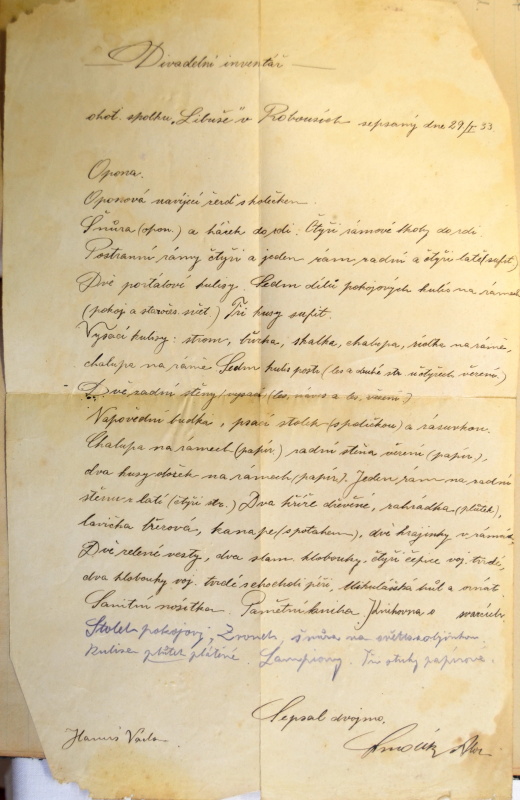 Divadelní inventář
ochot. spolku „Libuše" v Robousích sepsaný dne 29/I 33.
Opona.
Oponová navíjecí žerď s kolečkem.
Šňůra (opon.) a háček do zdi. Čtyři rámové skoby do zdi
Postranní rámy čtyři a jeden rám zadní a čtyři latě (sufit)
Dvě portálové kulisy. Sedm dílů pokojových kulis na rámech
(pokoj a staroč. svět) Tři kusy sufit.
Vysací kulisy: strom, bříza, skalka, chalupa, zídka na rámě,
chalupa na rámě Sedm kulis (les a druhé str.
Dvě zadní stěny vysací (les, náves a les,
Napovědní budka, psací stolek (s poličkou) a zásuvkou.
Chalupa na rámech (papír) zadní stěna vězení (papír),
dva kusy došek na rámech (papír). Jeden rám na zadní
stěnu z latí (čtyři str.) Dva kříže dřevěné, zahrádka (plůtek),
lavička březová, kanape (s potahem), dvě krajinky v rámách,
Dvě zelené vesty, dva slam. klobouky, čtyři čepice voj. tvrdé,
dva klobouky voj. tvrdé s chocholi péří, Mikulášská hůl a ornát
Sanitní nosítka. Pamětní kniha Knihovna o svazcích
Stolek pokojový, Zvonek, šňůra na
Kulisa plůtek plátěné. Lampiony. Tři stuhy papírové.
Sepsal dvojmo.
Hamiš Václ. Smolík